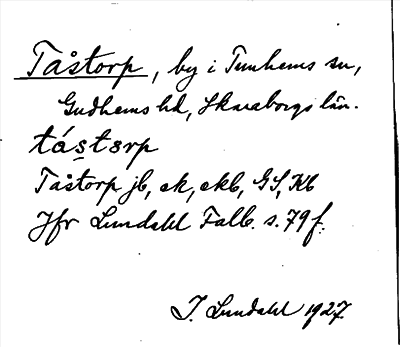 Tåstorp, by i Tunhems sn,
Gudhems hd, Skaraborgs län.
tástorp
Tåstorp jb, ek, ekb, GS, Kb
Jfr Lundahl Falb. s. 79 f.
I. Lundahl 1927.